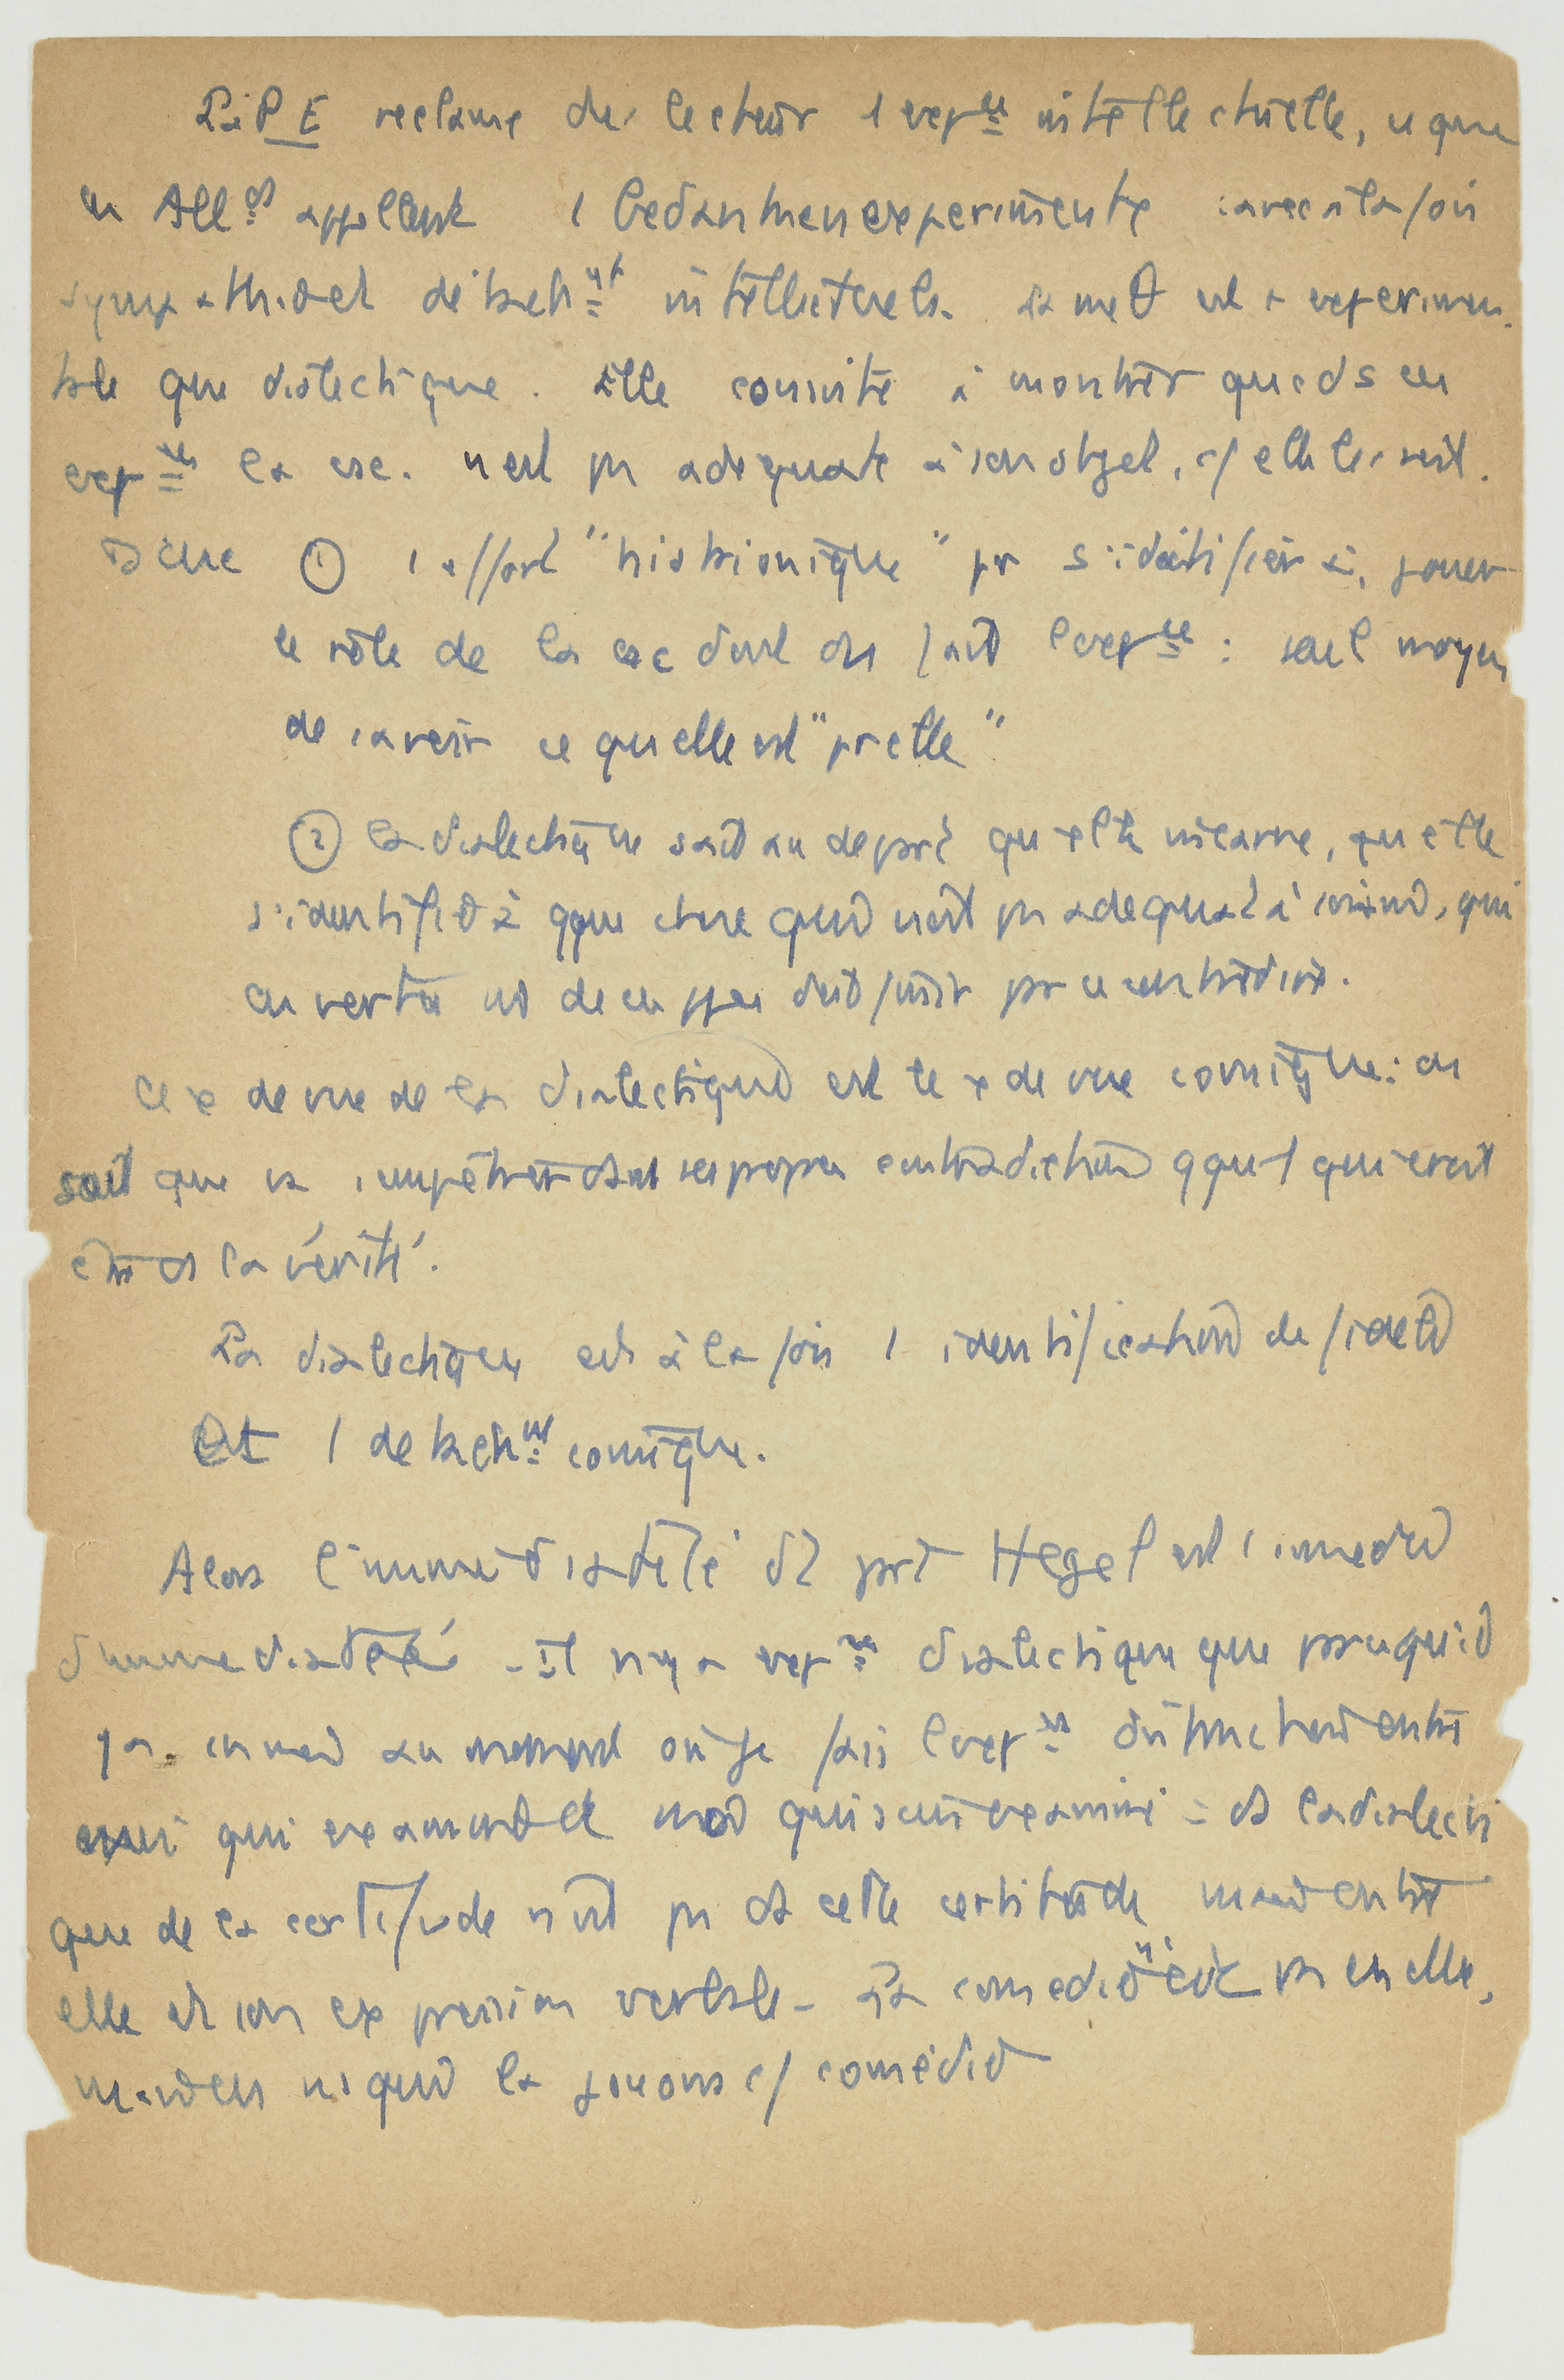 La P E réclame du lecteur 1 exp<sup>ce</sup> intellectuelle, ce que
les All<sup>ds</sup> appellent 1 Gedankenexperiment : avec à la fois
sympathie et détach<sup>nt</sup> intellectuels. La met est expérimen
tale que dialectique. Elle consiste à montrer que ds ces
exp<sup>ces</sup> la csc. n'est pas adéquate à son objet, c/ elle le sait.
Donc ① 1 effort "histrionique" pr s'identifier à, jouer
le rôle de la csc dont on fait l'exp<sup>ce</sup> : seul moyen
de savoir ce qu'elle est "pr elle"
② la dialectique sait au départ qu'elle incarne, qu'elle
s'identifie à qque chose qui n'est pas adéquat à qui
en vertu de doit finir par se contredire.
Le x de vue de la dialectique est le x de vue comique : on
sait que va ds ses propres contradictions qqu'1 qui croit
être ds la vérité.
La dialectique est à la fois 1 identification
Et 1 détach<sup>nt</sup> comique.
Alors l'immédiateté dt parle Hegel est
d'immédiateté - Il n'y a exp<sup>ce</sup> dialectique que parce qu'il
y a au moment où je fais l'exp<sup>ce</sup> distinction entre
moi qui examine et moi qui suis examiné = ds la dialecti
que de la certitude n'est pas ds cette certitude mais entre
elle et son expression verbale - La comédie n'est pas en elle,
mais en ns qui la jouons c/ comédie